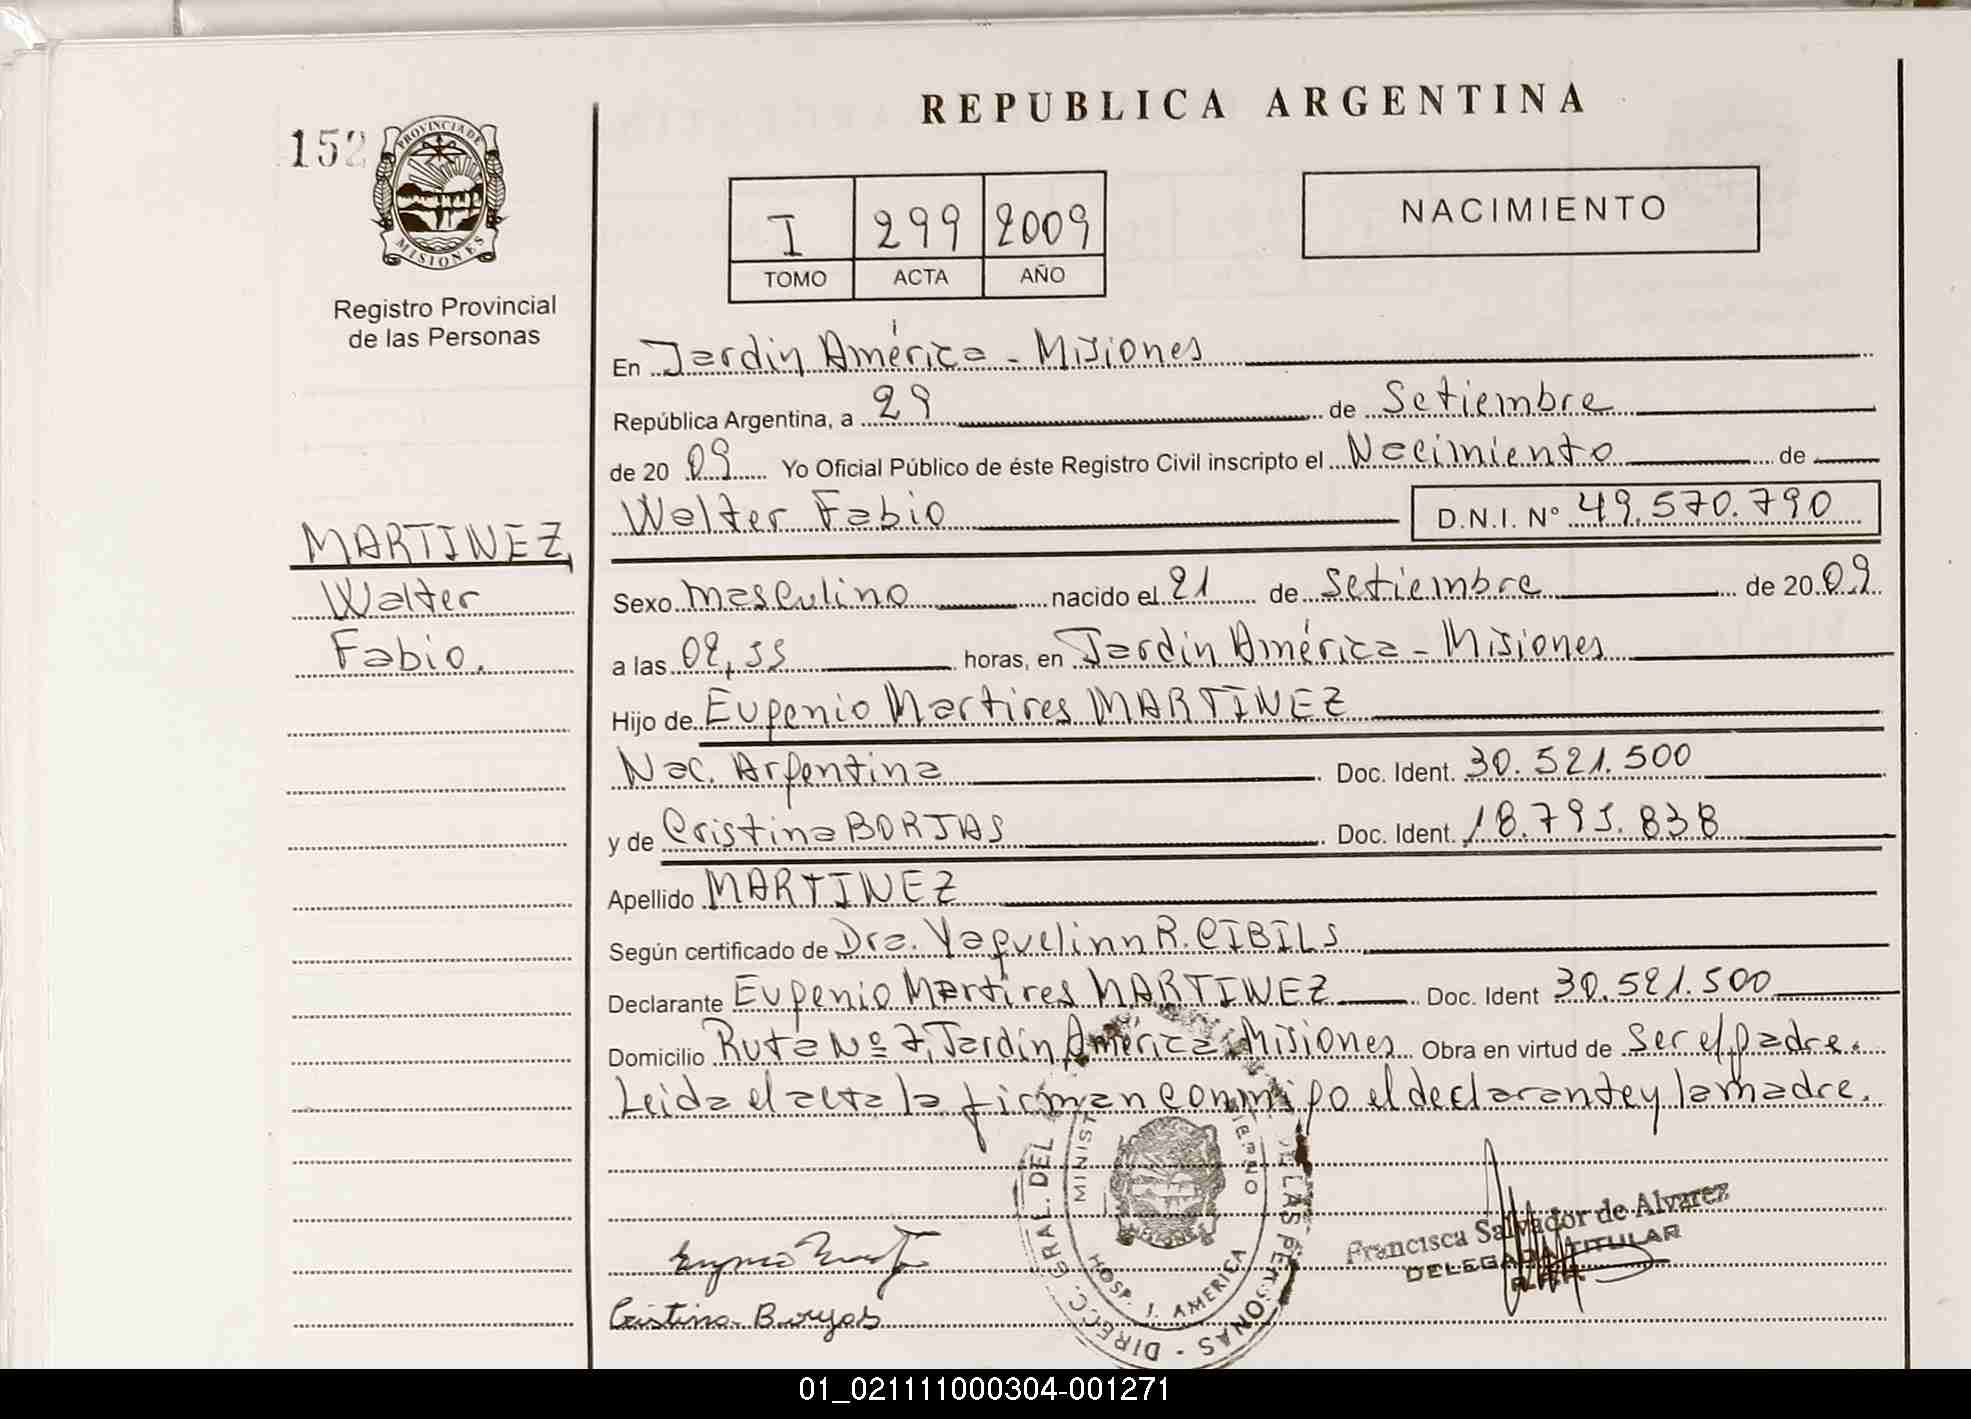 REPUBLICA ARGENTINA
152
PROVINCIA DE
MISIONES
Registro Provincial
de las Personas
I 299 2009
TOMO ACTA AÑO
NACIMIENTO
En Jardín América - Misiones
República Argentina, a 29 de Setiembre
de 20 09 Yo Oficial Público de éste Registro Civil inscripto el Nacimiento de
Walter Fabio D.N.I. N° 49.570.790
MARTINEZ,
Walter
Fabio.
Sexo masculino nacido el 21 de Setiembre de 20 09
a las 02,55 horas, en Jardín América - Misiones
Hijo de Eugenio Martires MARTINEZ
Nac. Argentina Doc. Ident. 30.521.500
y de Cristina BORJAS Doc. Ident. 18.795.838
Apellido MARTINEZ
Según certificado de Dra. Yaquelinn R. CIBILS
Declarante Eugenio Martires MARTINEZ Doc. Ident 30.521.500
Domicilio Ruta Nº 7, Jardín América Misiones Obra en virtud de ser el padre.
Leida el acta la firman conmigo el declarante y la madre.
DIRECC. GRAL. DEL DE LAS PERSONAS -
MISIONES
HOSP. J. AMERICA
Francisca Salvador de Alvarez
DELEGADA TITULAR
Cristina Borjas
01_021111000304-001271